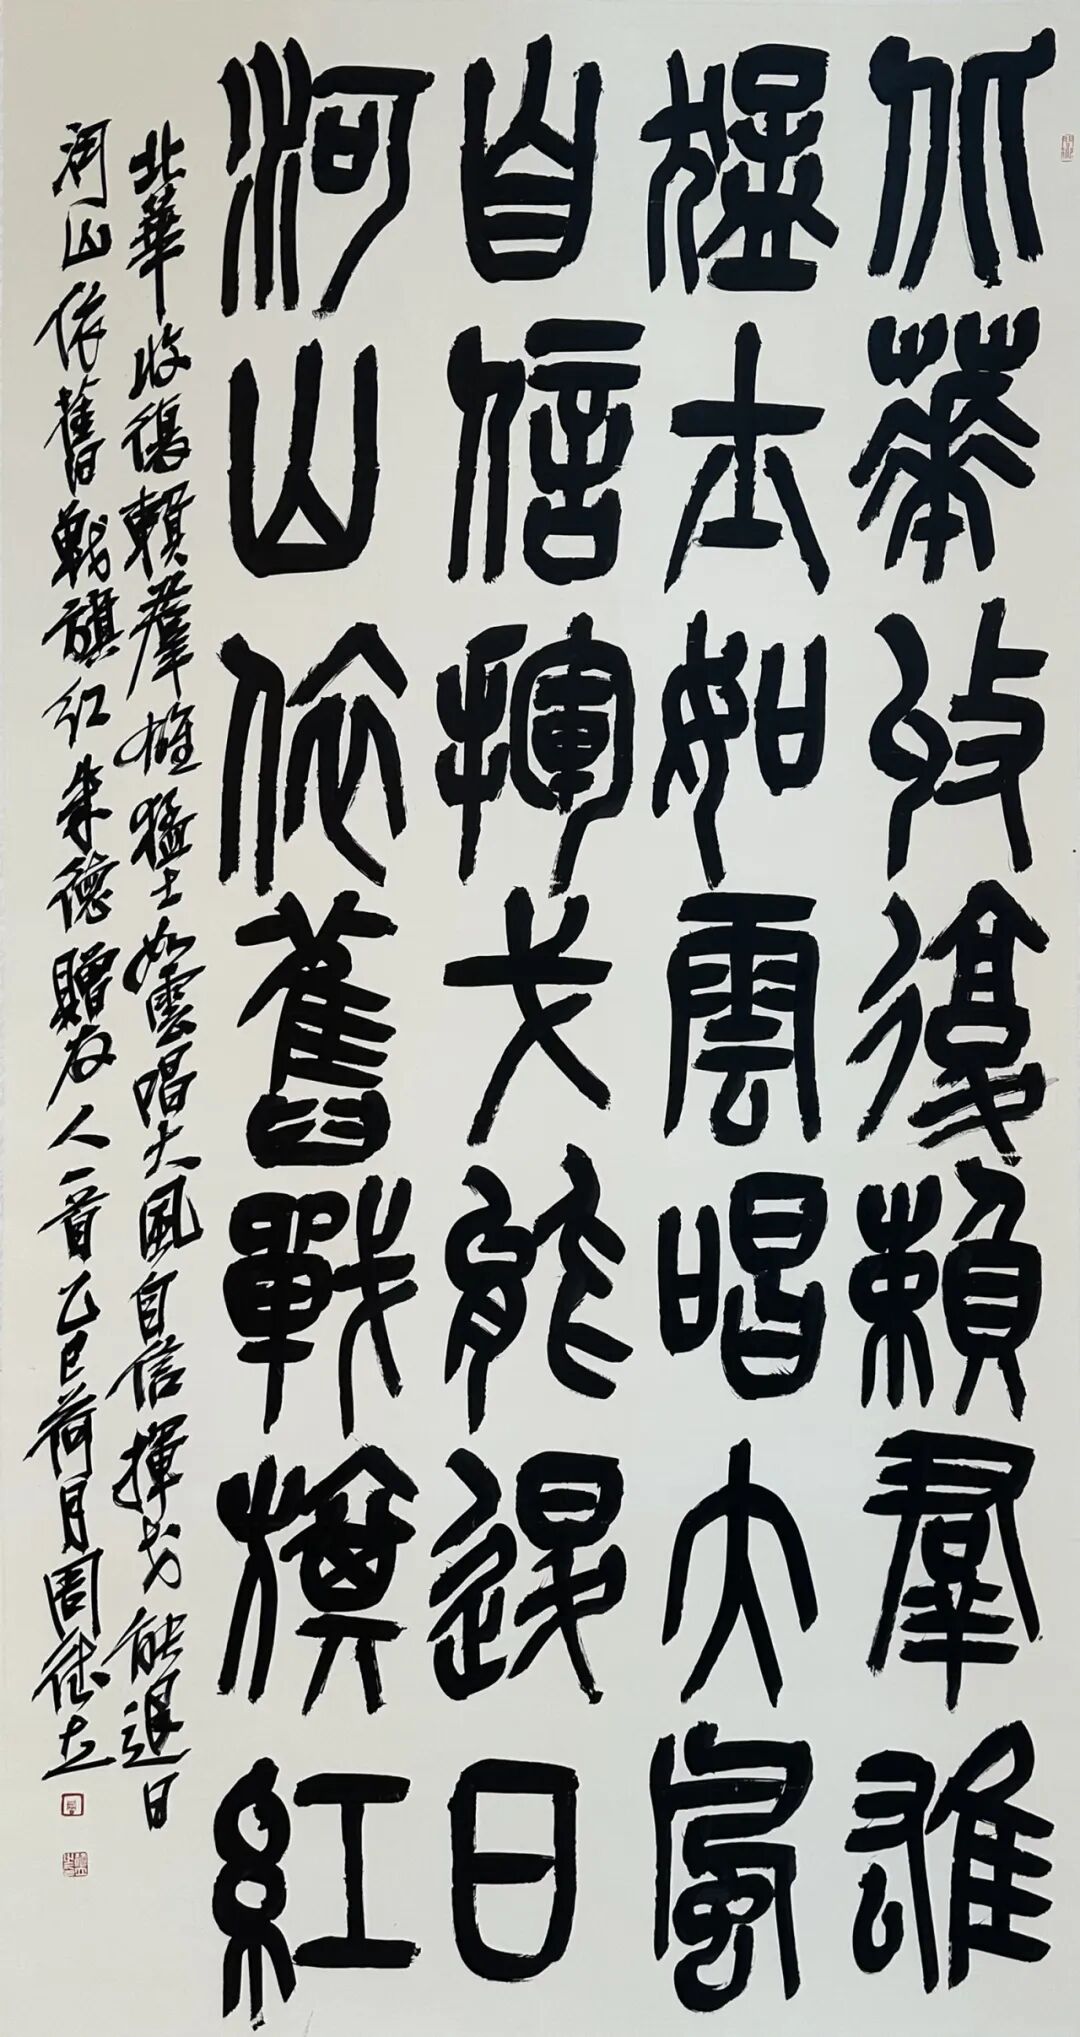 北華收復賴羣雄
猛士如雲唱大風
自信揮戈能退日
河山依舊戰旗紅
北華收復賴羣雄猛士如雲唱大風自信揮戈能退日
河山依舊戰旗紅朱德贈友人一首乙巳荷月周德左